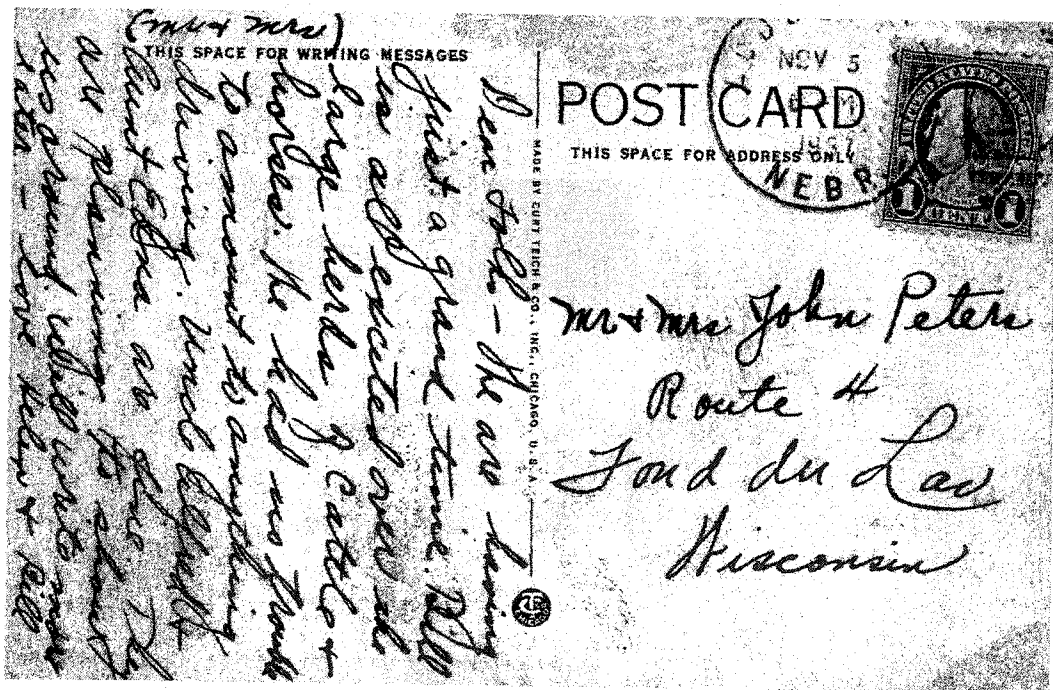 (Mr & Mrs)
THIS SPACE FOR WRITING MESSAGES
Dear Folks - We are having
just a grand time. Bill
is all excited over all
large herds of Cattle &
horses. We had no trouble
to amount to anything
driving. Uncle &
Aunt Edna are fine. They
are planning to show
us around. Will write more
later - Love Helen & Bill
MADE BY CURT TEICH & CO., INC., CHICAGO, U.S.A.
POST CARD
THIS SPACE FOR ADDRESS ONLY
NOV 5
1937
NEBR
UNITED STATES POSTAGE
1 CENT 1
Mr & Mrs John Peters
Route 4
Fond du Lac
Wisconsin